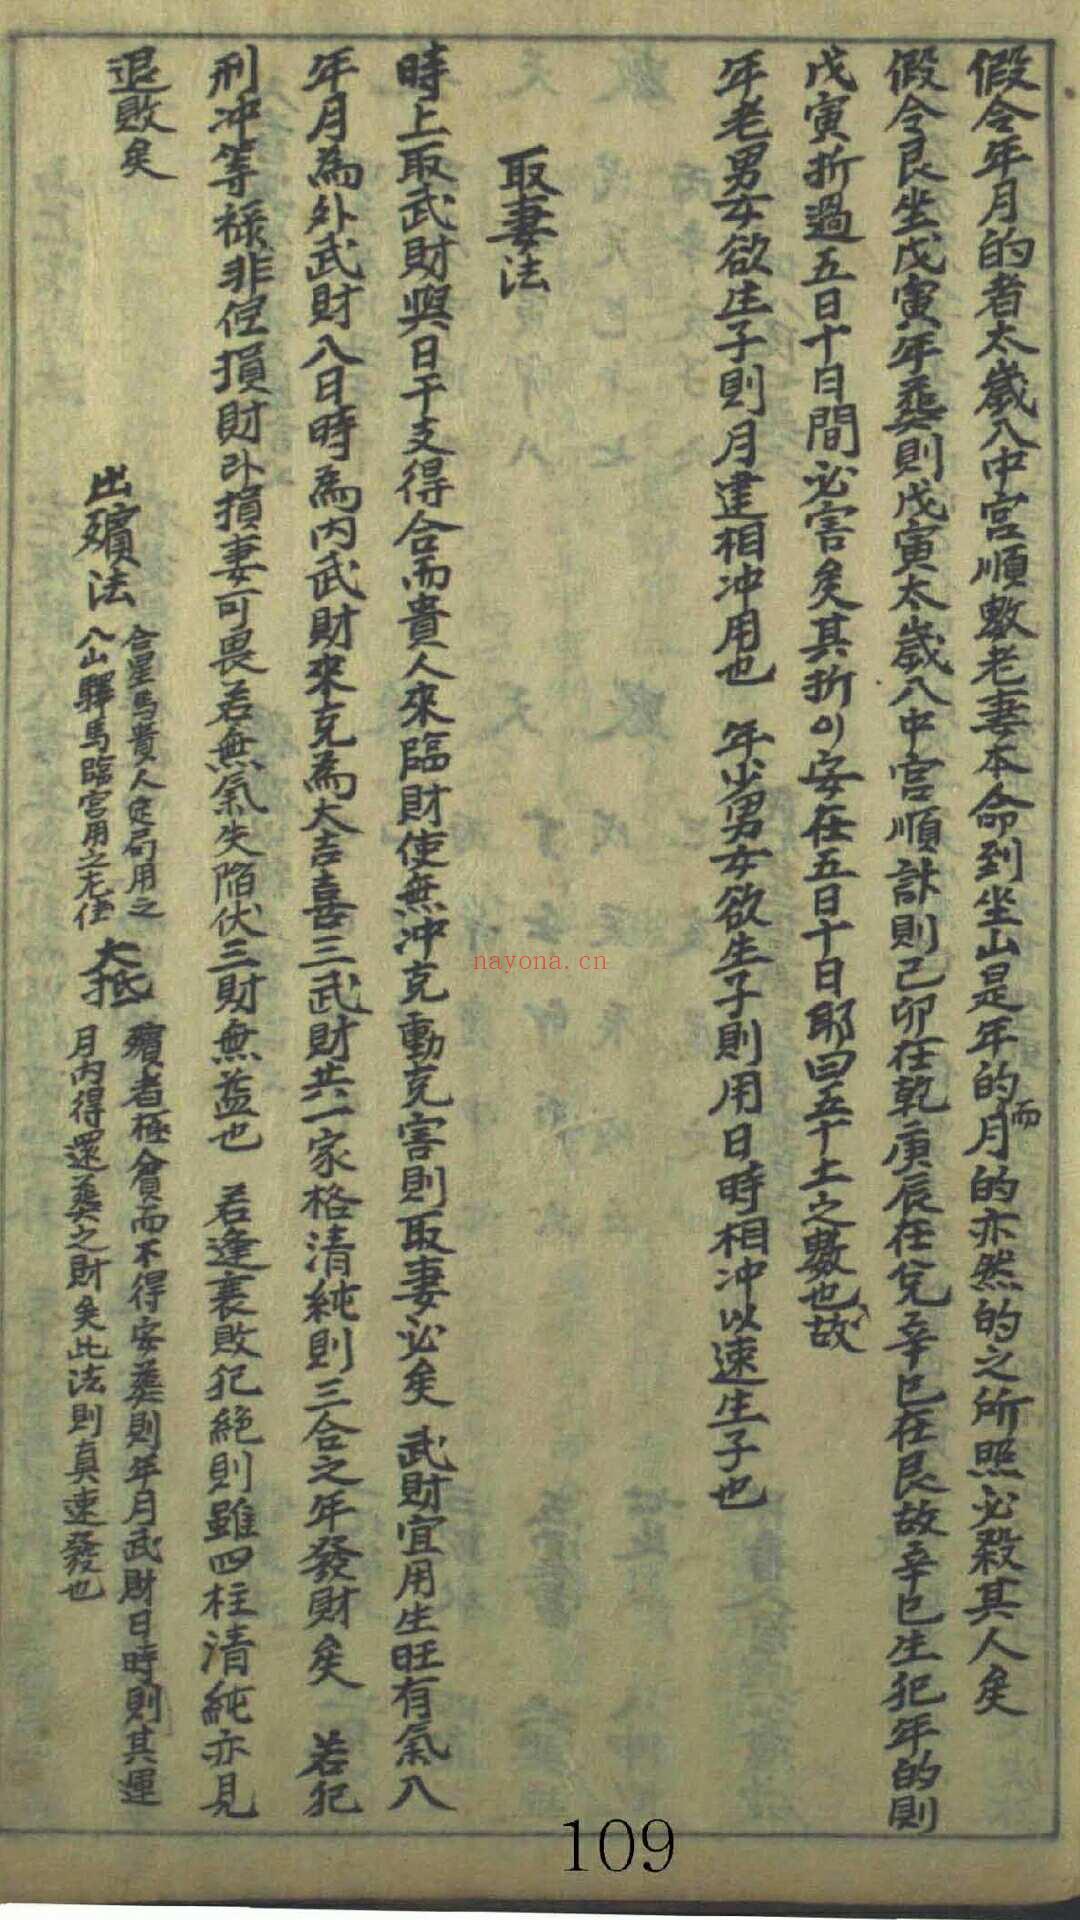 假令年月的者太歲入中宮順數老妻本命到坐山是年的而月的亦然的之所照必殺其人矣
假令艮坐戊寅年葬則戊寅太歲入中宮順計則己卯在乾庚辰在兌辛巳在艮故辛巳生犯年的則
戊寅折過五日十日間必害矣其折이安在五日十日耶曰五十土之數也故
年老男女欲生子則月建相冲用也 年少男女欲生子則用日時相冲以速生子也
取妻法
時上取武財與日干支得合而貴人來臨財使無冲克動克害則取妻必矣 武財宜用生旺有氣入
年月為外武財入日時為內武財來克為大吉喜三武財共一家格清純則三合之年發財矣 若犯
刑冲等祿非但損財卦損妻可畏若無氣失陷伏三財無益也 若逢衰敗犯絕則雖四柱清純亦見
退敗矣
出殯法 合星馬貴人定局用之
入山驛馬臨宮用之尤佳
大抵 殯者極貧而不得安葬則年月武財日時則其運
月內得還葬之財矣此法則真速發也
nayona.cn
109